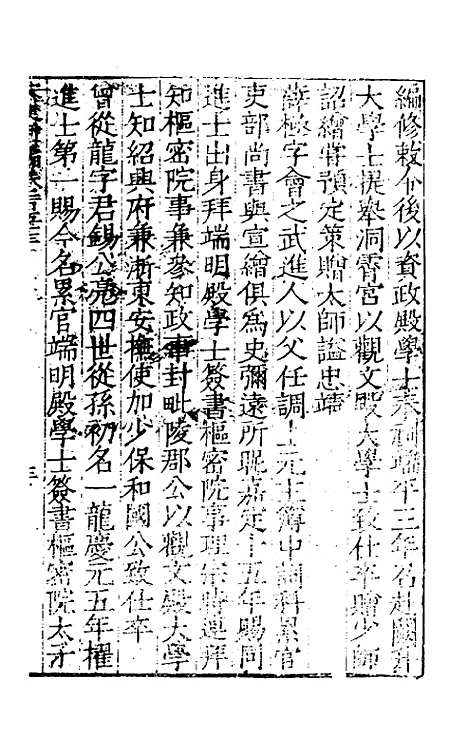 編修敕令後以資政殿學士奉祠端平三年召赴闕升
大學士提舉洞霄宮以觀文殿大學士致仕卒贈少師
詔繪嘗預定策贈太師謚忠靖
薛極字會之武進人以父任調上元主簿中詞科累官
吏部尚書與宣繒俱爲史彌遠所昵嘉定十五年賜同
進士出身拜端明殿學士簽書樞密院事理宗時遷拜
知樞密院事兼參知政事封毗陵郡公以觀文殿大學
士知紹興府兼浙東安撫使加少保和國公致仕卒
曾從龍字君錫公亮四世從孫初名一龍慶元五年擢
進士第一賜今名累官端明殿學士簽書樞密院太子
三